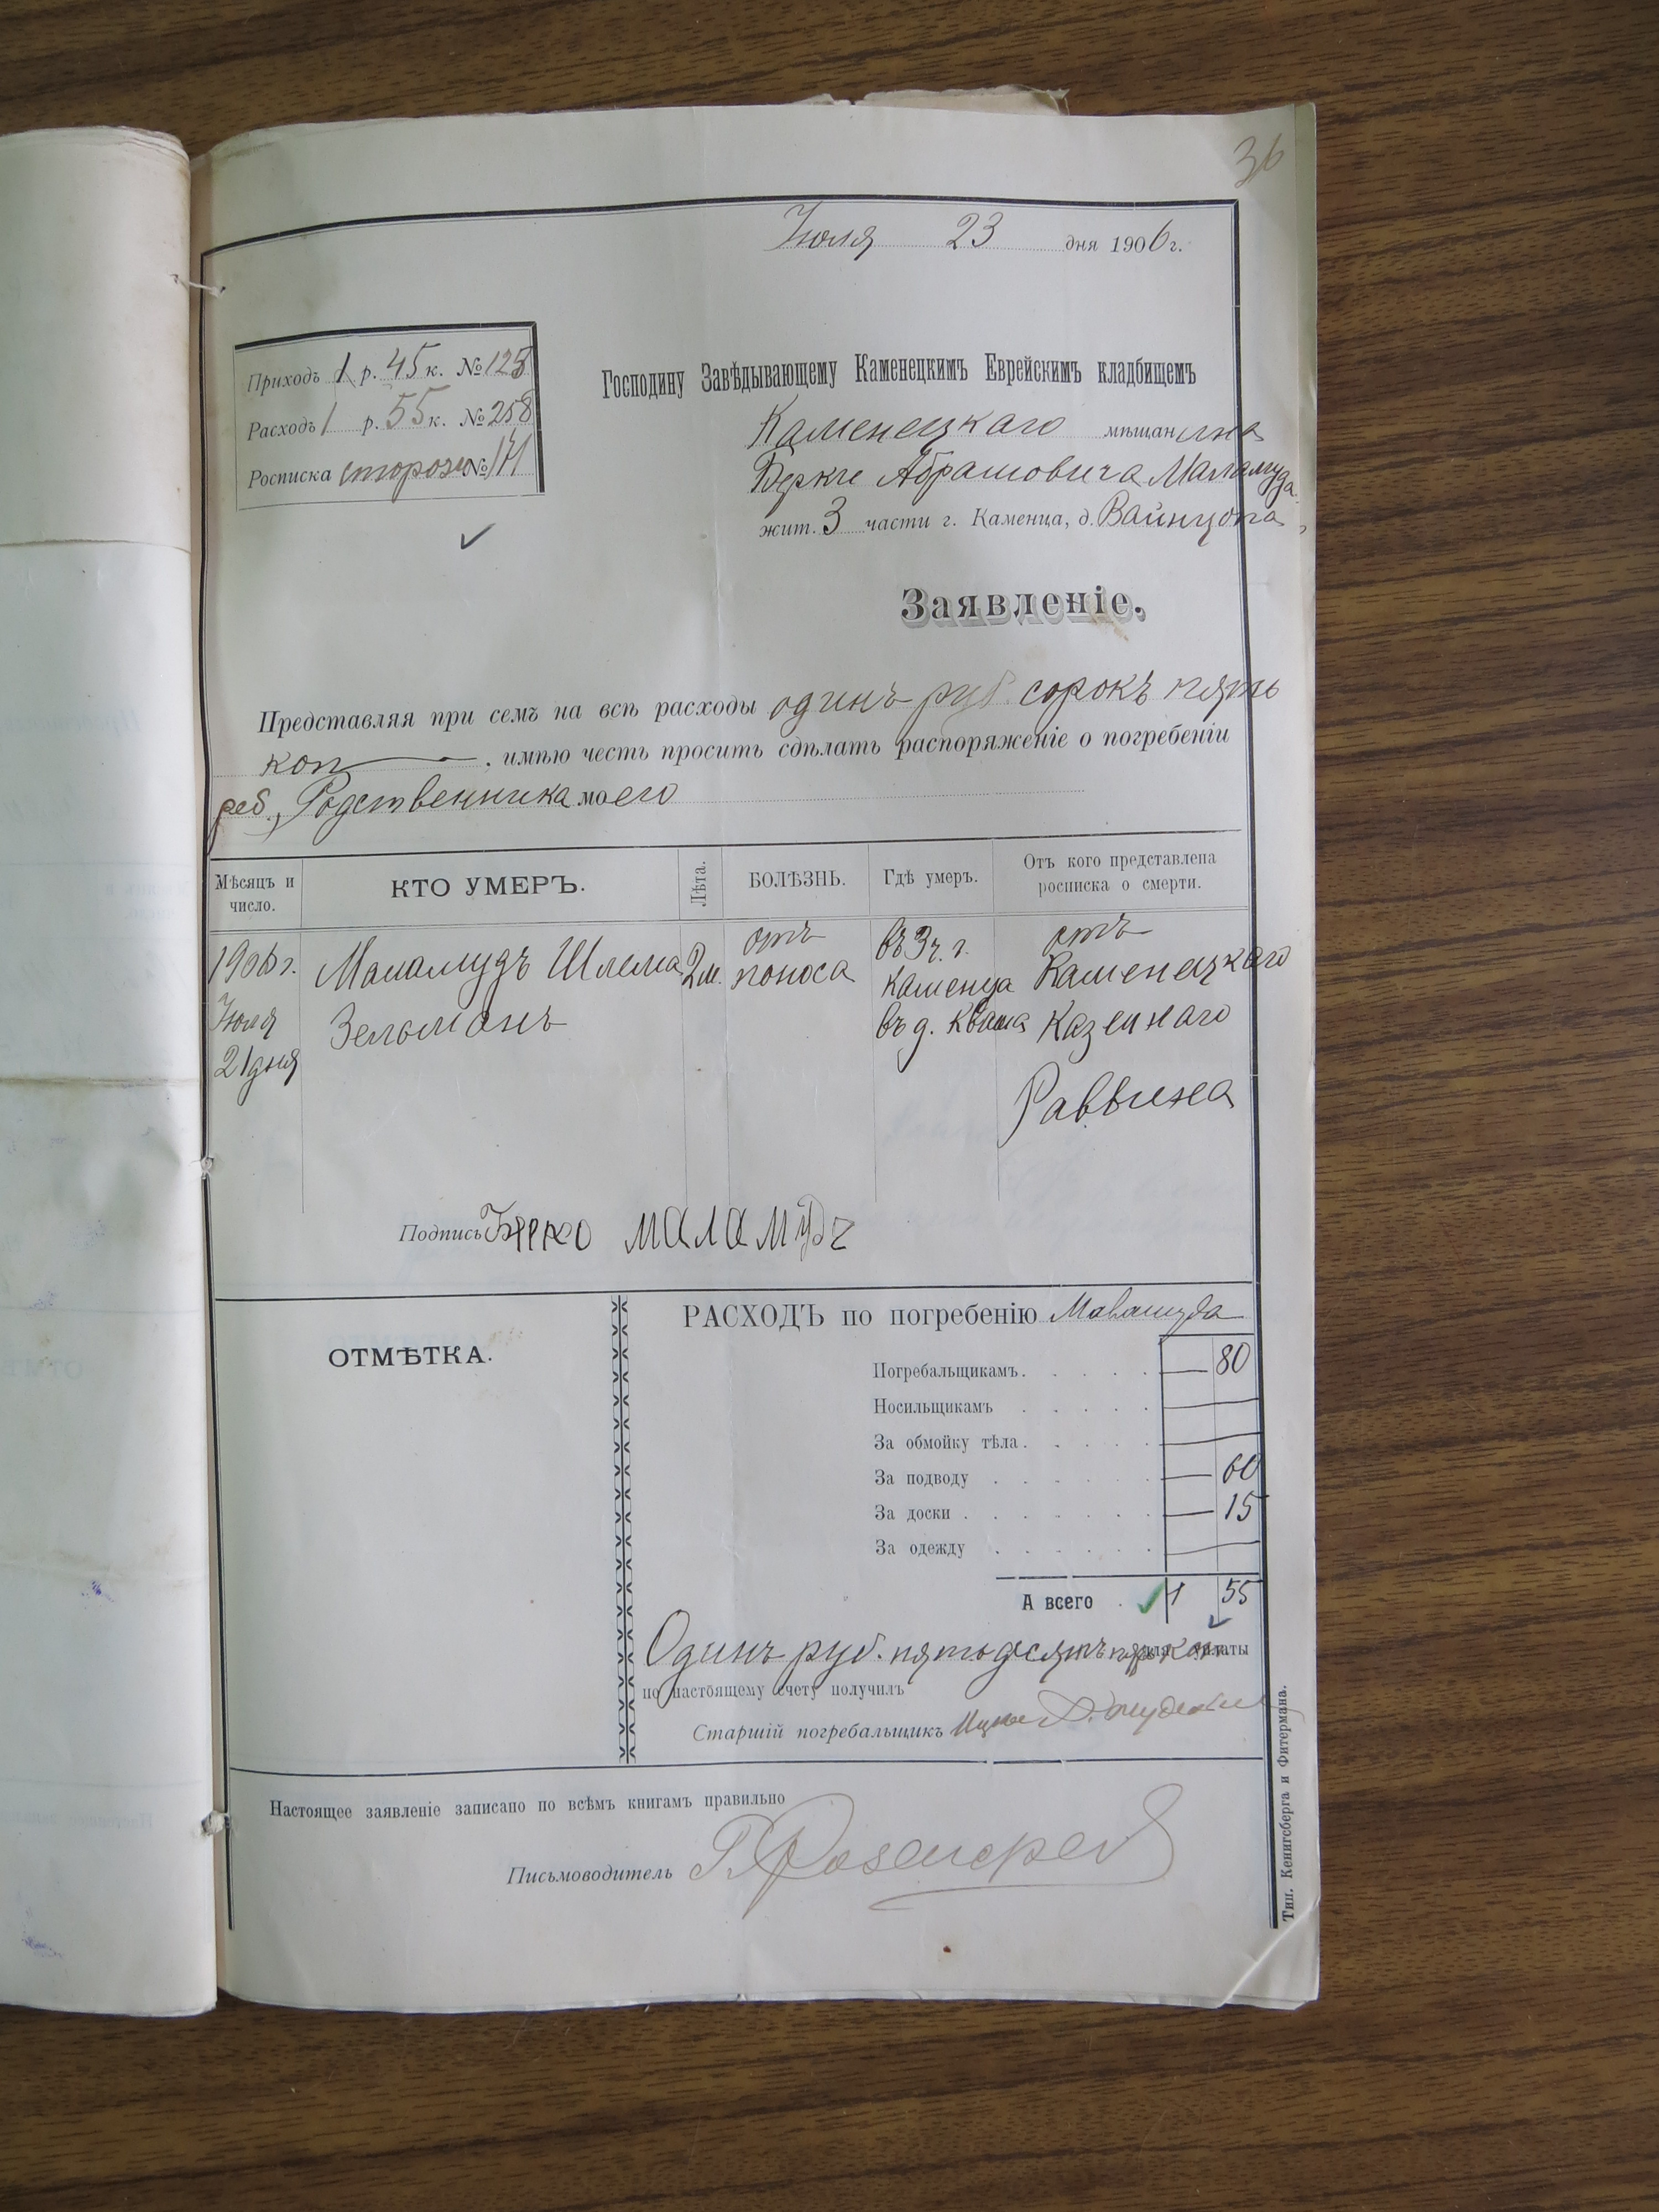 36
Июля 23 дня 1906 г.
Приходъ 1 р. 45 к. № 125
Расходъ 1 р. 55 к. № 258
Росписка сторожа № 171
Господину Завѣдывающему Каменецкимъ Еврейскимъ кладбищемъ
Каменецкаго мѣщанина
Берка Абрамовича Маламуда
жит. 3 части г. Каменца, д. Вайнцопа
Заявленіе.
Представляя при семъ на всѣ расходы одинъ руб. сорокъ пять
коп , имѣю честь просить сдѣлать распоряженіе о погребеніи
реб. Родственника моего
Мѣсяцъ и число. КТО УМЕРЪ. Лѣта. БОЛѢЗНЬ. Гдѣ умеръ. Отъ кого представлена росписка о смерти.
1906 г. Маламудъ Шлема 2 м. отъ поноса въ 3 ч. г. Каменца отъ Каменецкаго
Июля Зельманъ въ д. Кваша Казеннаго
21 дня Раввина
Подпись Берко маламудъ
ОТМѢТКА.
РАСХОДЪ по погребенію Маламуда
Погребальщикамъ. — 80
Носильщикамъ —
За обмойку тѣла. —
За подводу — 60
За доски — 15
За одежду —
А всего 1 55
Одинъ руб. пятьдесятъ пять коп. для уплаты
по настоящему счету получилъ
Старшій погребальщикъ
Настоящее заявленіе записано по всѣмъ книгамъ правильно
Письмоводитель
Тип. Кенигсберга и Фитермана.